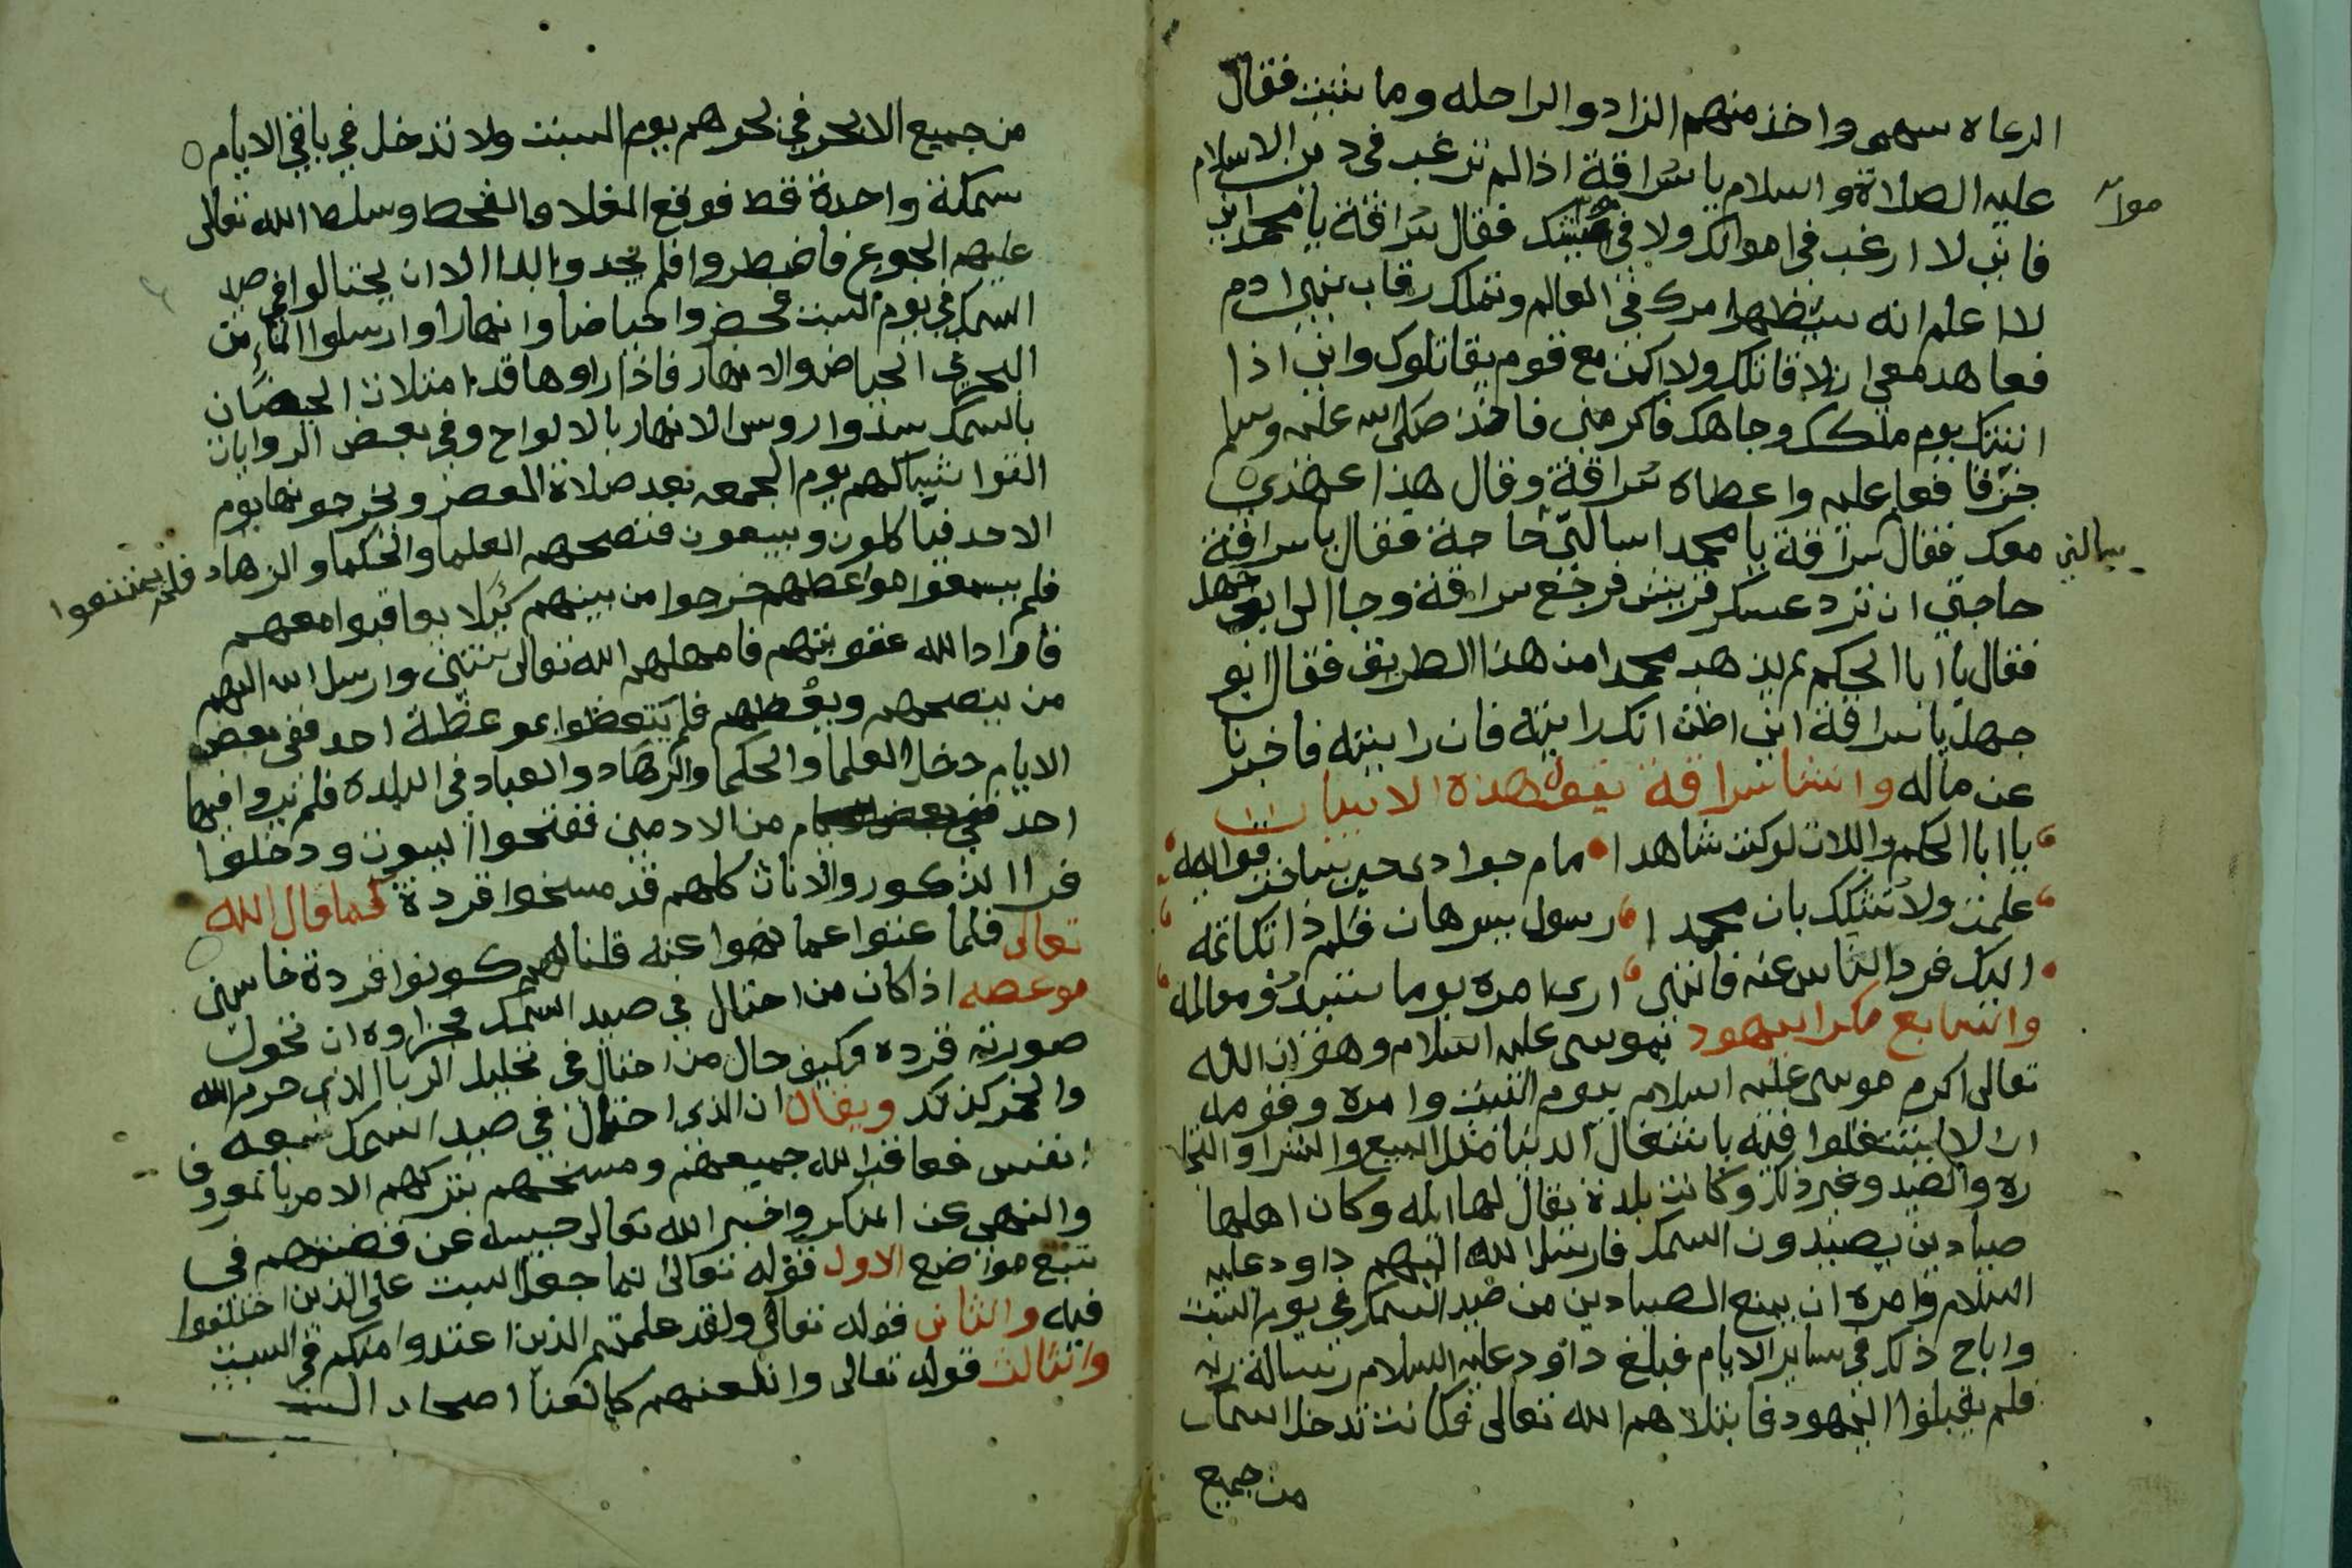 الرعاه سهمى واخذ منهم الزاد والراحله وما شيت فقال
عليه الصلاة والسلام يا سراقة اذا لم ترغب فى دين الاسلام
فانى لا ارغب فى اموالك ولا فى فقال سراقة يا محمد انى
لا اعلم انه سيظهر امرك فى العالم وتملك رقاب بنى ادم
فعاهد معى ان لا قاتلك ولا اكن مع قوم يقاتلوك وانى اذا
اتيتك يوم ملكك وجاهك فاكرمنى فاخذ صلى الله عليه وسلم
خزفا فعا عليه واعطاه سراقة وقال هذا عهدى
معك فقال سراقة يا محمد اسالنى حاجة فقال يا سراقة
يسالنى
حاجتى ان ترد عسكر قريش فرجع سراقة وجا الى ابو جهل
فقال يا ابا الحكم لم يذهب محمدا من هذا الطريق فقال ابو
جهل يا سراقة انى اظن انك رايته فان رايته فاخبرنا
عن ماله وانشا سراقة يقول هذه الابيات
يا ابا الحكم واللات لو كنت شاهدا جوادى حين ساخت قوايمه
علمت ولا تشكك بان محمدا رسول ببرهان فلم ذا تكاتمه
اليك فرد الناس عنه فاننى ارى امره يوما ستبدو معالمه
والسابع مكر اليهود بموسى عليه السلام وهو ان الله
تعالى اكرم موسى عليه السلام بيوم السبت وامره وقومه
ان لا يشتغلوا فيه باشتغال الدنيا مثل البيع والشرا والتجا
ره والصيد وغير ذلك وكانت بلدة يقال لها ايله وكان اهلها
صيادين يصيدون السمك فارسل الله اليهم داود عليه
السلام وامره ان يمنع الصيادين من صيد السمك فى يوم السبت
واباح ذلك فى ساير الايام فبلغ داود عليه السلام رسالة ربه
فلم يقبلوا اليهود فابتلاهم الله تعالى فكانت تدخل السماك
من جميع
من جميع الابحر فى بحرهم يوم السبت ولا تدخل فى باقى الايام
سمكة واحدة قط فوقع الغلا والقحط وسلط الله تعالى
عليهم الجوع فاضطروا فلم يجدوا ابدا الا ان يحتالوا فى صيد
السمك فى يوم السبت فحضروا حياضا وانهارا وارسلوا الماء من
البحر الى الحياض والانهار فاذا راوها قد امتلات الحيضان
بالسمك سدوا روس الانهار بالالواح وفى بعض الروايات
القوا شباكهم يوم الجمعه بعد صلاة العصر ويخرجونها يوم
الاحد فياكلون ويبيعون فنصحهم العلما والحكما والزهاد فلم يمتنعوا
فلم يسمعوا مواعظهم خرجوا من بينهم كيلا يعاقبوا معهم
فاراد الله عقوبتهم فامهلهم الله تعالى سنتين وارسل الله اليهم
من ينصحهم ويعظهم فلم يتعظوا بموعظة احد ففى بعض
الايام دخل العلما والحكما والزهاد والعباد فى البلدة فلم يروا فيها
احد من الادميين ففتحوا البيوت ودخلوا
فراا الذكور والاناث كلهم قد مسخوا قردة كما قال الله
تعالى فلما عتوا عما نهوا عنه قلنا لهم كونوا قردة خاسين
موعصه اذا كان من احتال فى صيد السمك فجزاوه ان تحول
صورته قرده فكيف حال من احتال فى تحليل الربا الذى حرم الله
والخمر كذلك ويقال ان الذى احتال فى صيد السمك سبعه
انفس فعاقب الله جميعهم ومسخهم بتركهم الامر بالمعروف
والنهى عن المنكر واخبر الله تعالى حبيبه عن قصتهم فى
سبع مواضع الاول قوله تعالى انما جعل السبت على الذين اختلفوا
فيه والثانى قوله تعالى ولقد علمتم الذين اعتدوا منكم فى السبت
والثالث قوله تعالى وانلعنهم كما لعنا اصحاب السبت